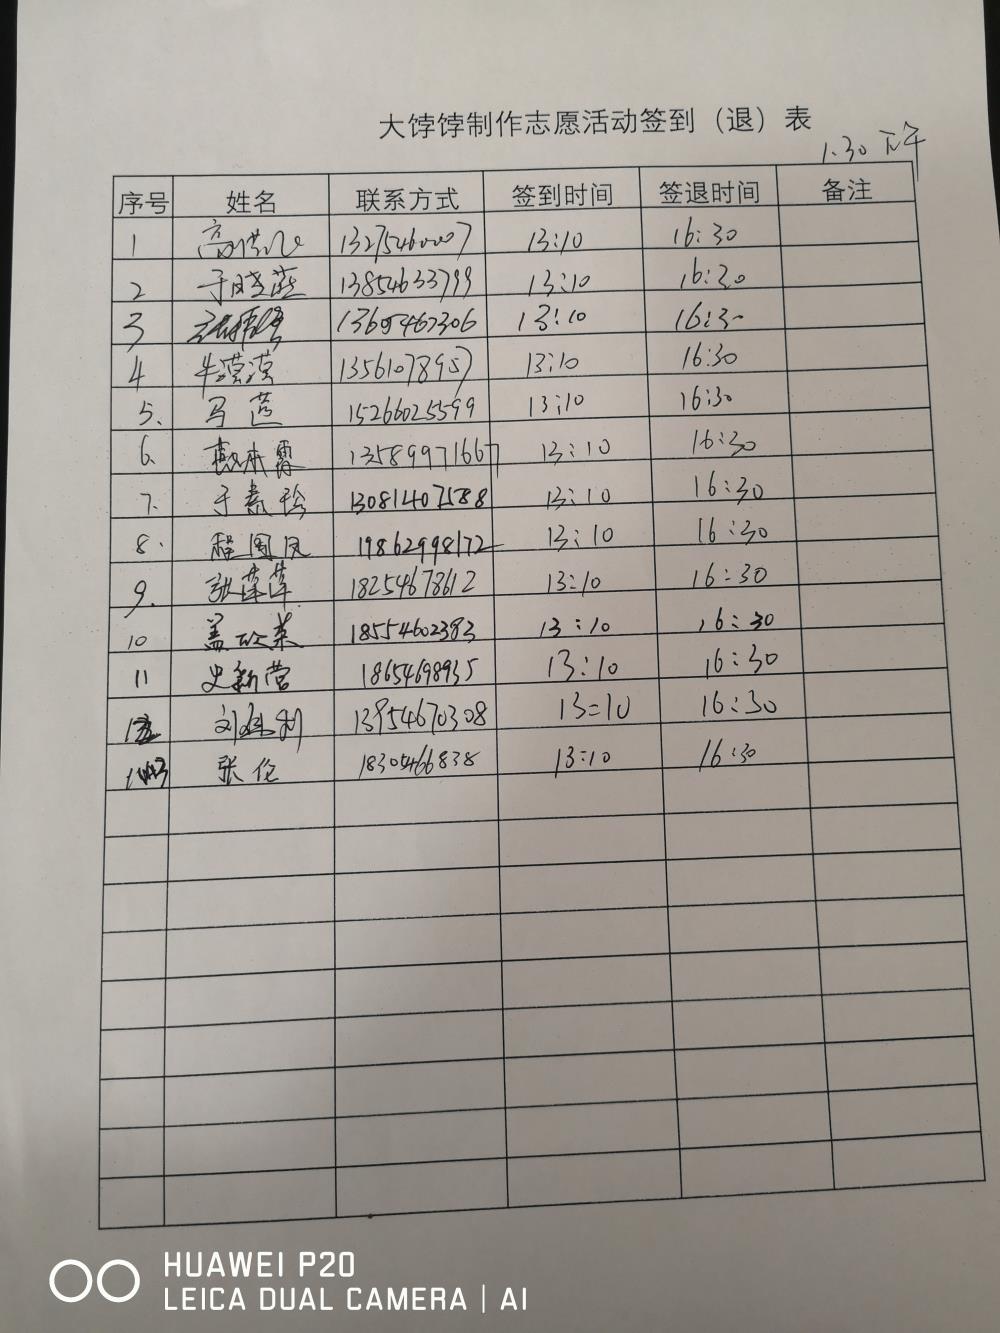 大饽饽制作志愿活动签到（退）表
1.30 下午
序号 姓名 联系方式 签到时间 签退时间 备注
1 13275460007 13:10 16:30
2 于晓燕 13854633799 13:10 16:30
3 13605467306 13:10 16:30
4 牛漠漠 13561078957 13:10 16:30
5. 马 15266025599 13:10 16:30
6. 13589971667 13:10 16:30
7. 于素珍 13081407588 13:10 16:30
8. 程国凤 19862998172 13:10 16:30
9. 张萍萍 18254678612 13:10 16:30
10 盖 18554602383 13:10 16:30
11 史新营 18654698935 13:10 16:30
12 刘胜利 13954670308 13:10 16:30
13 张伦 18305466838 13:10 16:30
HUAWEI P20
LEICA DUAL CAMERA | AI